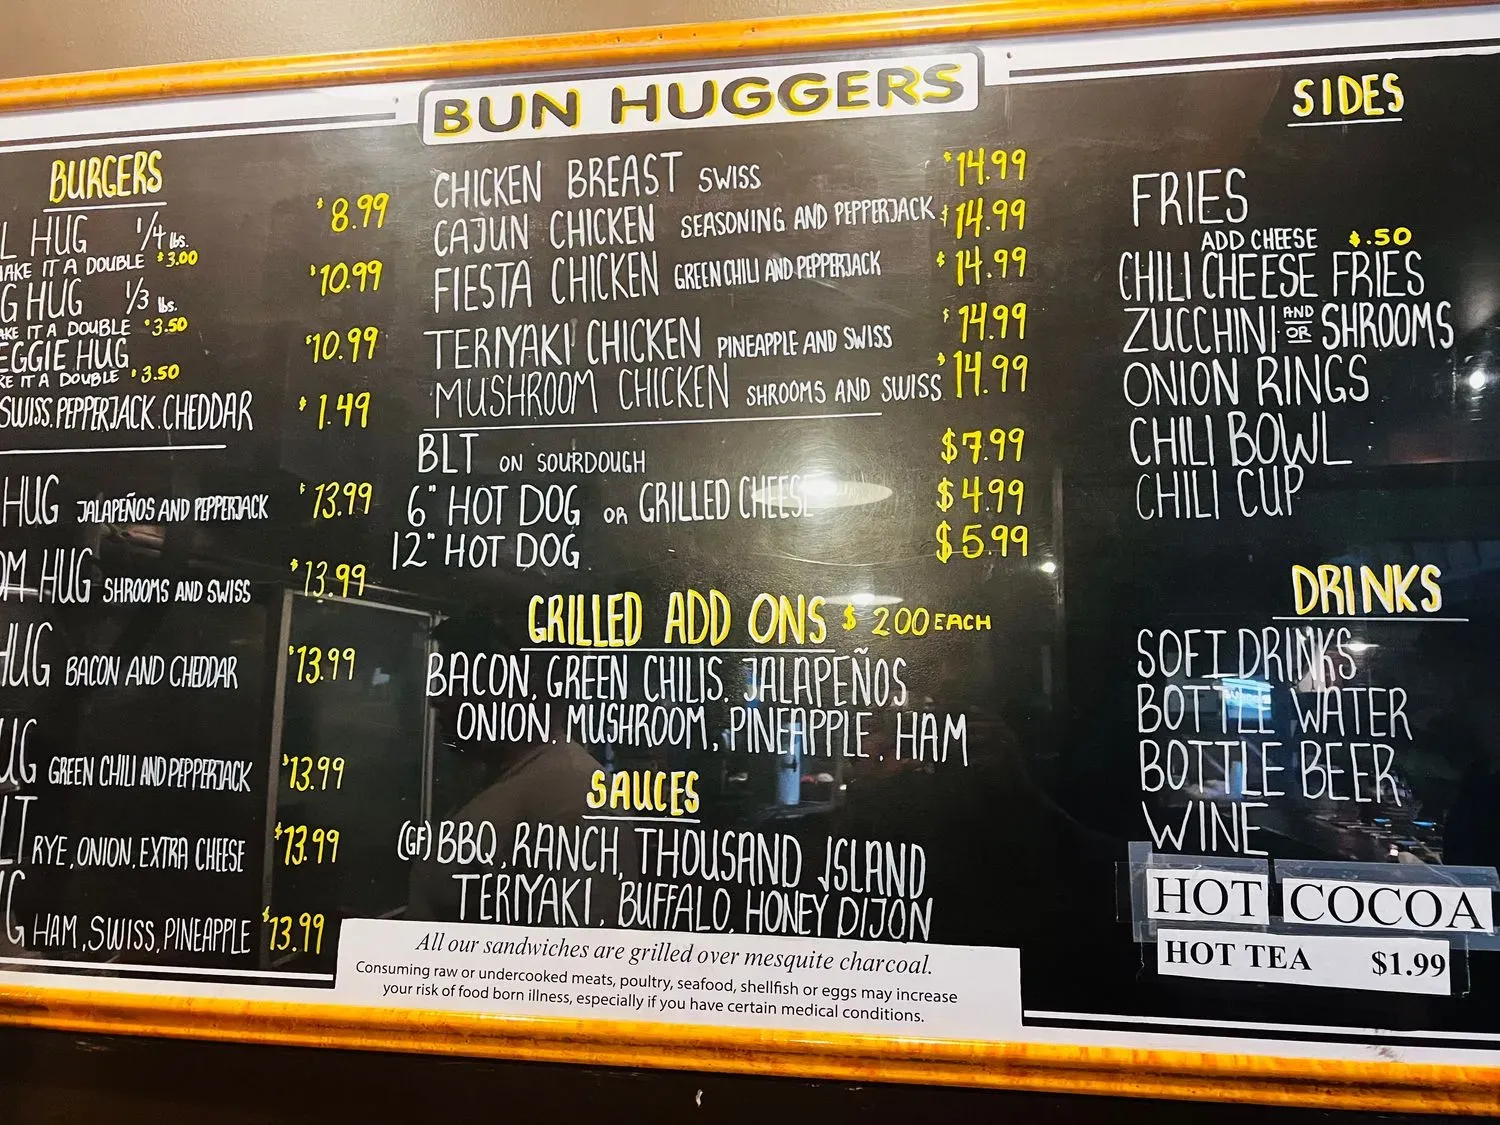 BUN HUGGERS
BURGERS
L HUG 1/4 lbs. $8.99
AKE IT A DOUBLE $3.00
G HUG 1/3 lbs. $10.99
AKE IT A DOUBLE $3.50
EGGIE HUG $10.99
KE IT A DOUBLE $3.50
SWISS, PEPPERJACK, CHEDDAR $1.49
HUG JALAPEÑOS AND PEPPERJACK $13.99
OM HUG SHROOMS AND SWISS $13.99
HUG BACON AND CHEDDAR $13.99
UG GREEN CHILI AND PEPPERJACK $13.99
LT RYE, ONION, EXTRA CHEESE $13.99
G HAM, SWISS, PINEAPPLE $13.99
CHICKEN BREAST SWISS $14.99
CAJUN CHICKEN SEASONING AND PEPPERJACK $14.99
FIESTA CHICKEN GREEN CHILI AND PEPPERJACK $14.99
TERIYAKI CHICKEN PINEAPPLE AND SWISS $14.99
MUSHROOM CHICKEN SHROOMS AND SWISS $14.99
BLT ON SOURDOUGH $7.99
6" HOT DOG OR GRILLED CHEESE $4.99
12" HOT DOG $5.99
GRILLED ADD ONS $200 EACH
BACON, GREEN CHILIS, JALAPEÑOS
ONION, MUSHROOM, PINEAPPLE, HAM
SAUCES
(GF) BBQ, RANCH, THOUSAND ISLAND
TERIYAKI, BUFFALO, HONEY DIJON
All our sandwiches are grilled over mesquite charcoal.
Consuming raw or undercooked meats, poultry, seafood, shellfish or eggs may increase
your risk of food born illness, especially if you have certain medical conditions.
SIDES
FRIES
ADD CHEESE $.50
CHILI CHEESE FRIES
ZUCCHINI AND OR SHROOMS
ONION RINGS
CHILI BOWL
CHILI CUP
DRINKS
SOFT DRINKS
BOTTLE WATER
BOTTLE BEER
WINE
HOT COCOA
HOT TEA $1.99